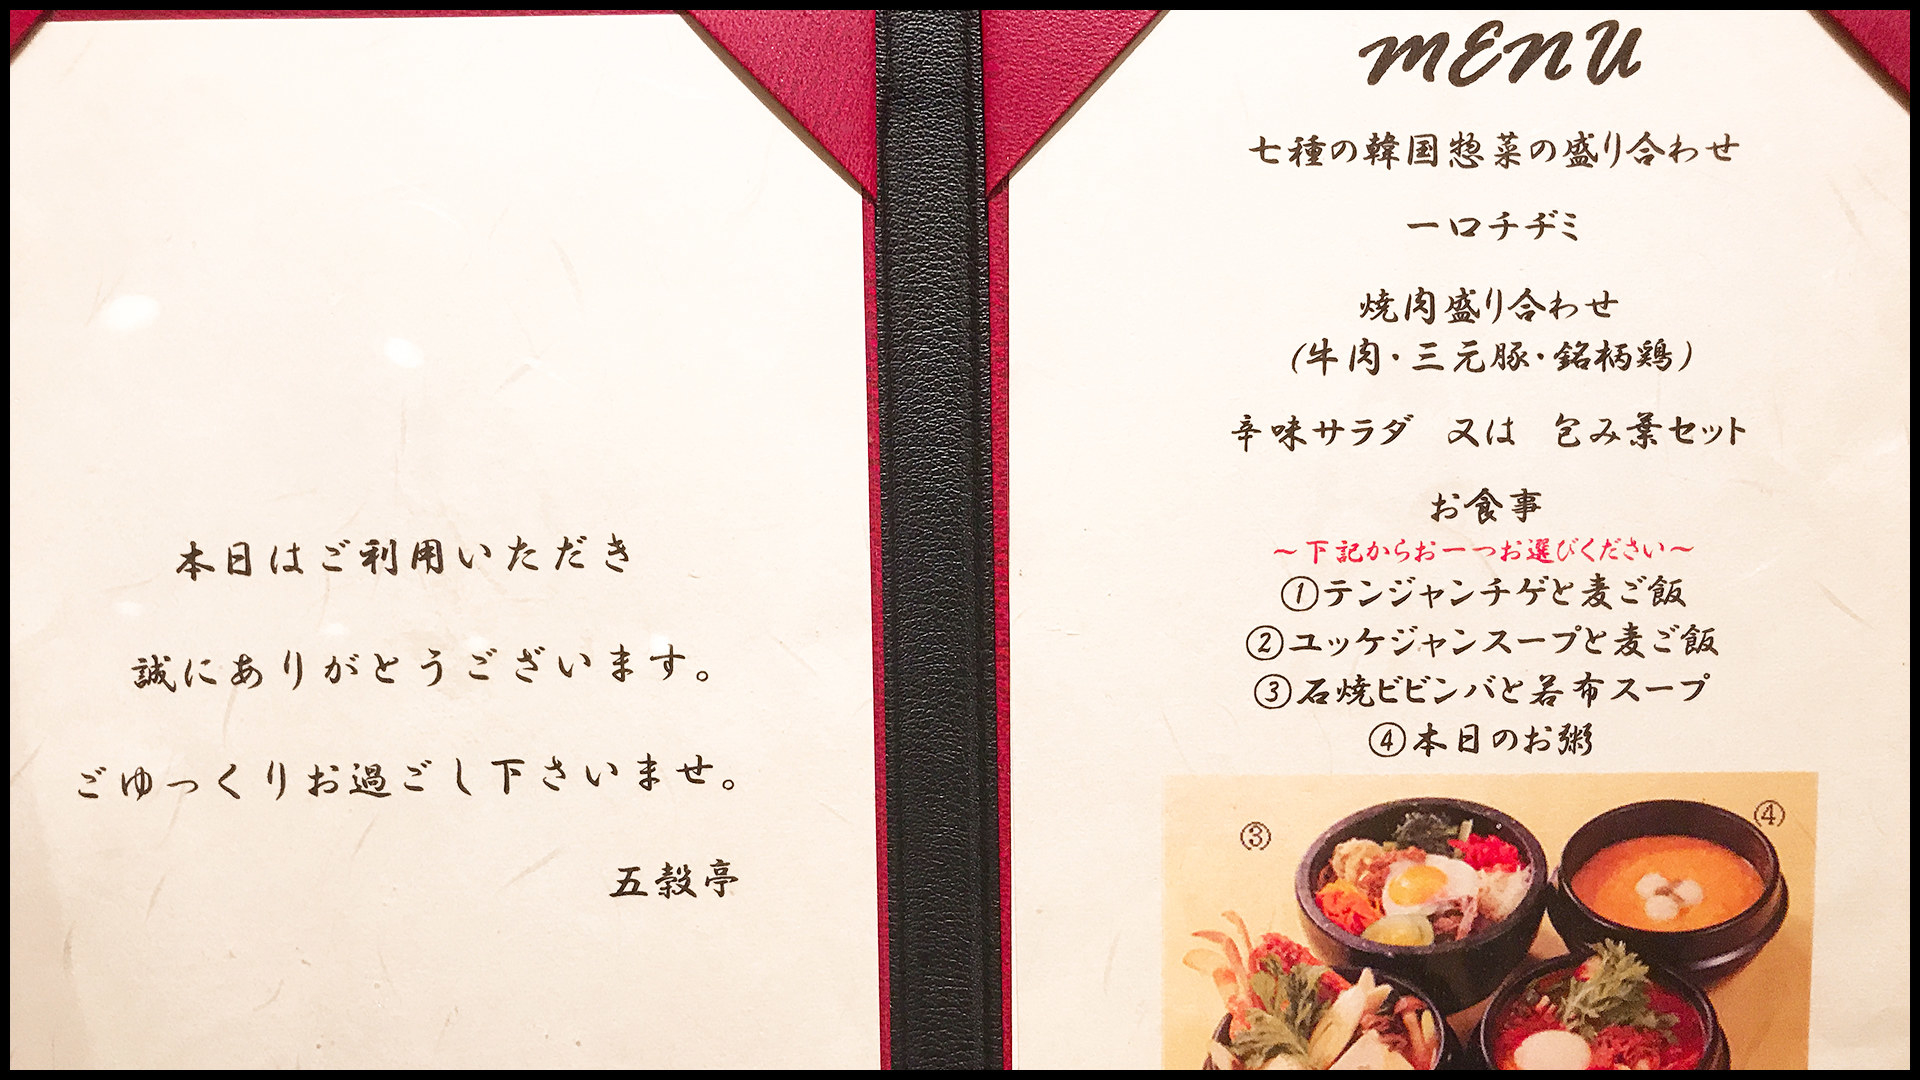 本日はご利用いただき
誠にありがとうございます。
ごゆっくりお過ごし下さいませ。
五穀亭
MENU
七種の韓国惣菜の盛り合わせ
一口チヂミ
焼肉盛り合わせ
(牛肉・三元豚・銘柄鶏)
辛味サラダ 又は 包み葉セット
お食事
～下記からお一つお選びください～
①テンジャンチゲと麦ご飯
②ユッケジャンスープと麦ご飯
③石焼ビビンバと若布スープ
④本日のお粥
③
④